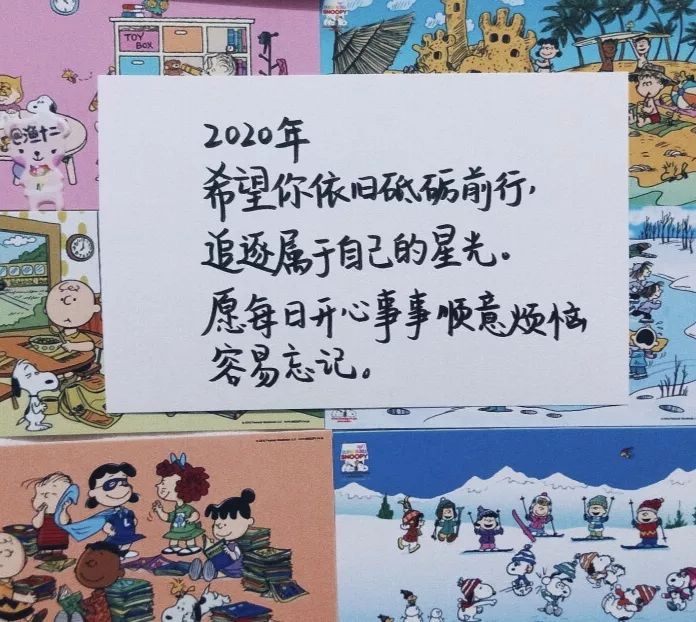 2020年
希望你依旧砥砺前行，
追逐属于自己的星光。
愿每日开心事事顺意烦恼
容易忘记。
TOY
BOX
@渔十二
SNOOPY
SNOOPY